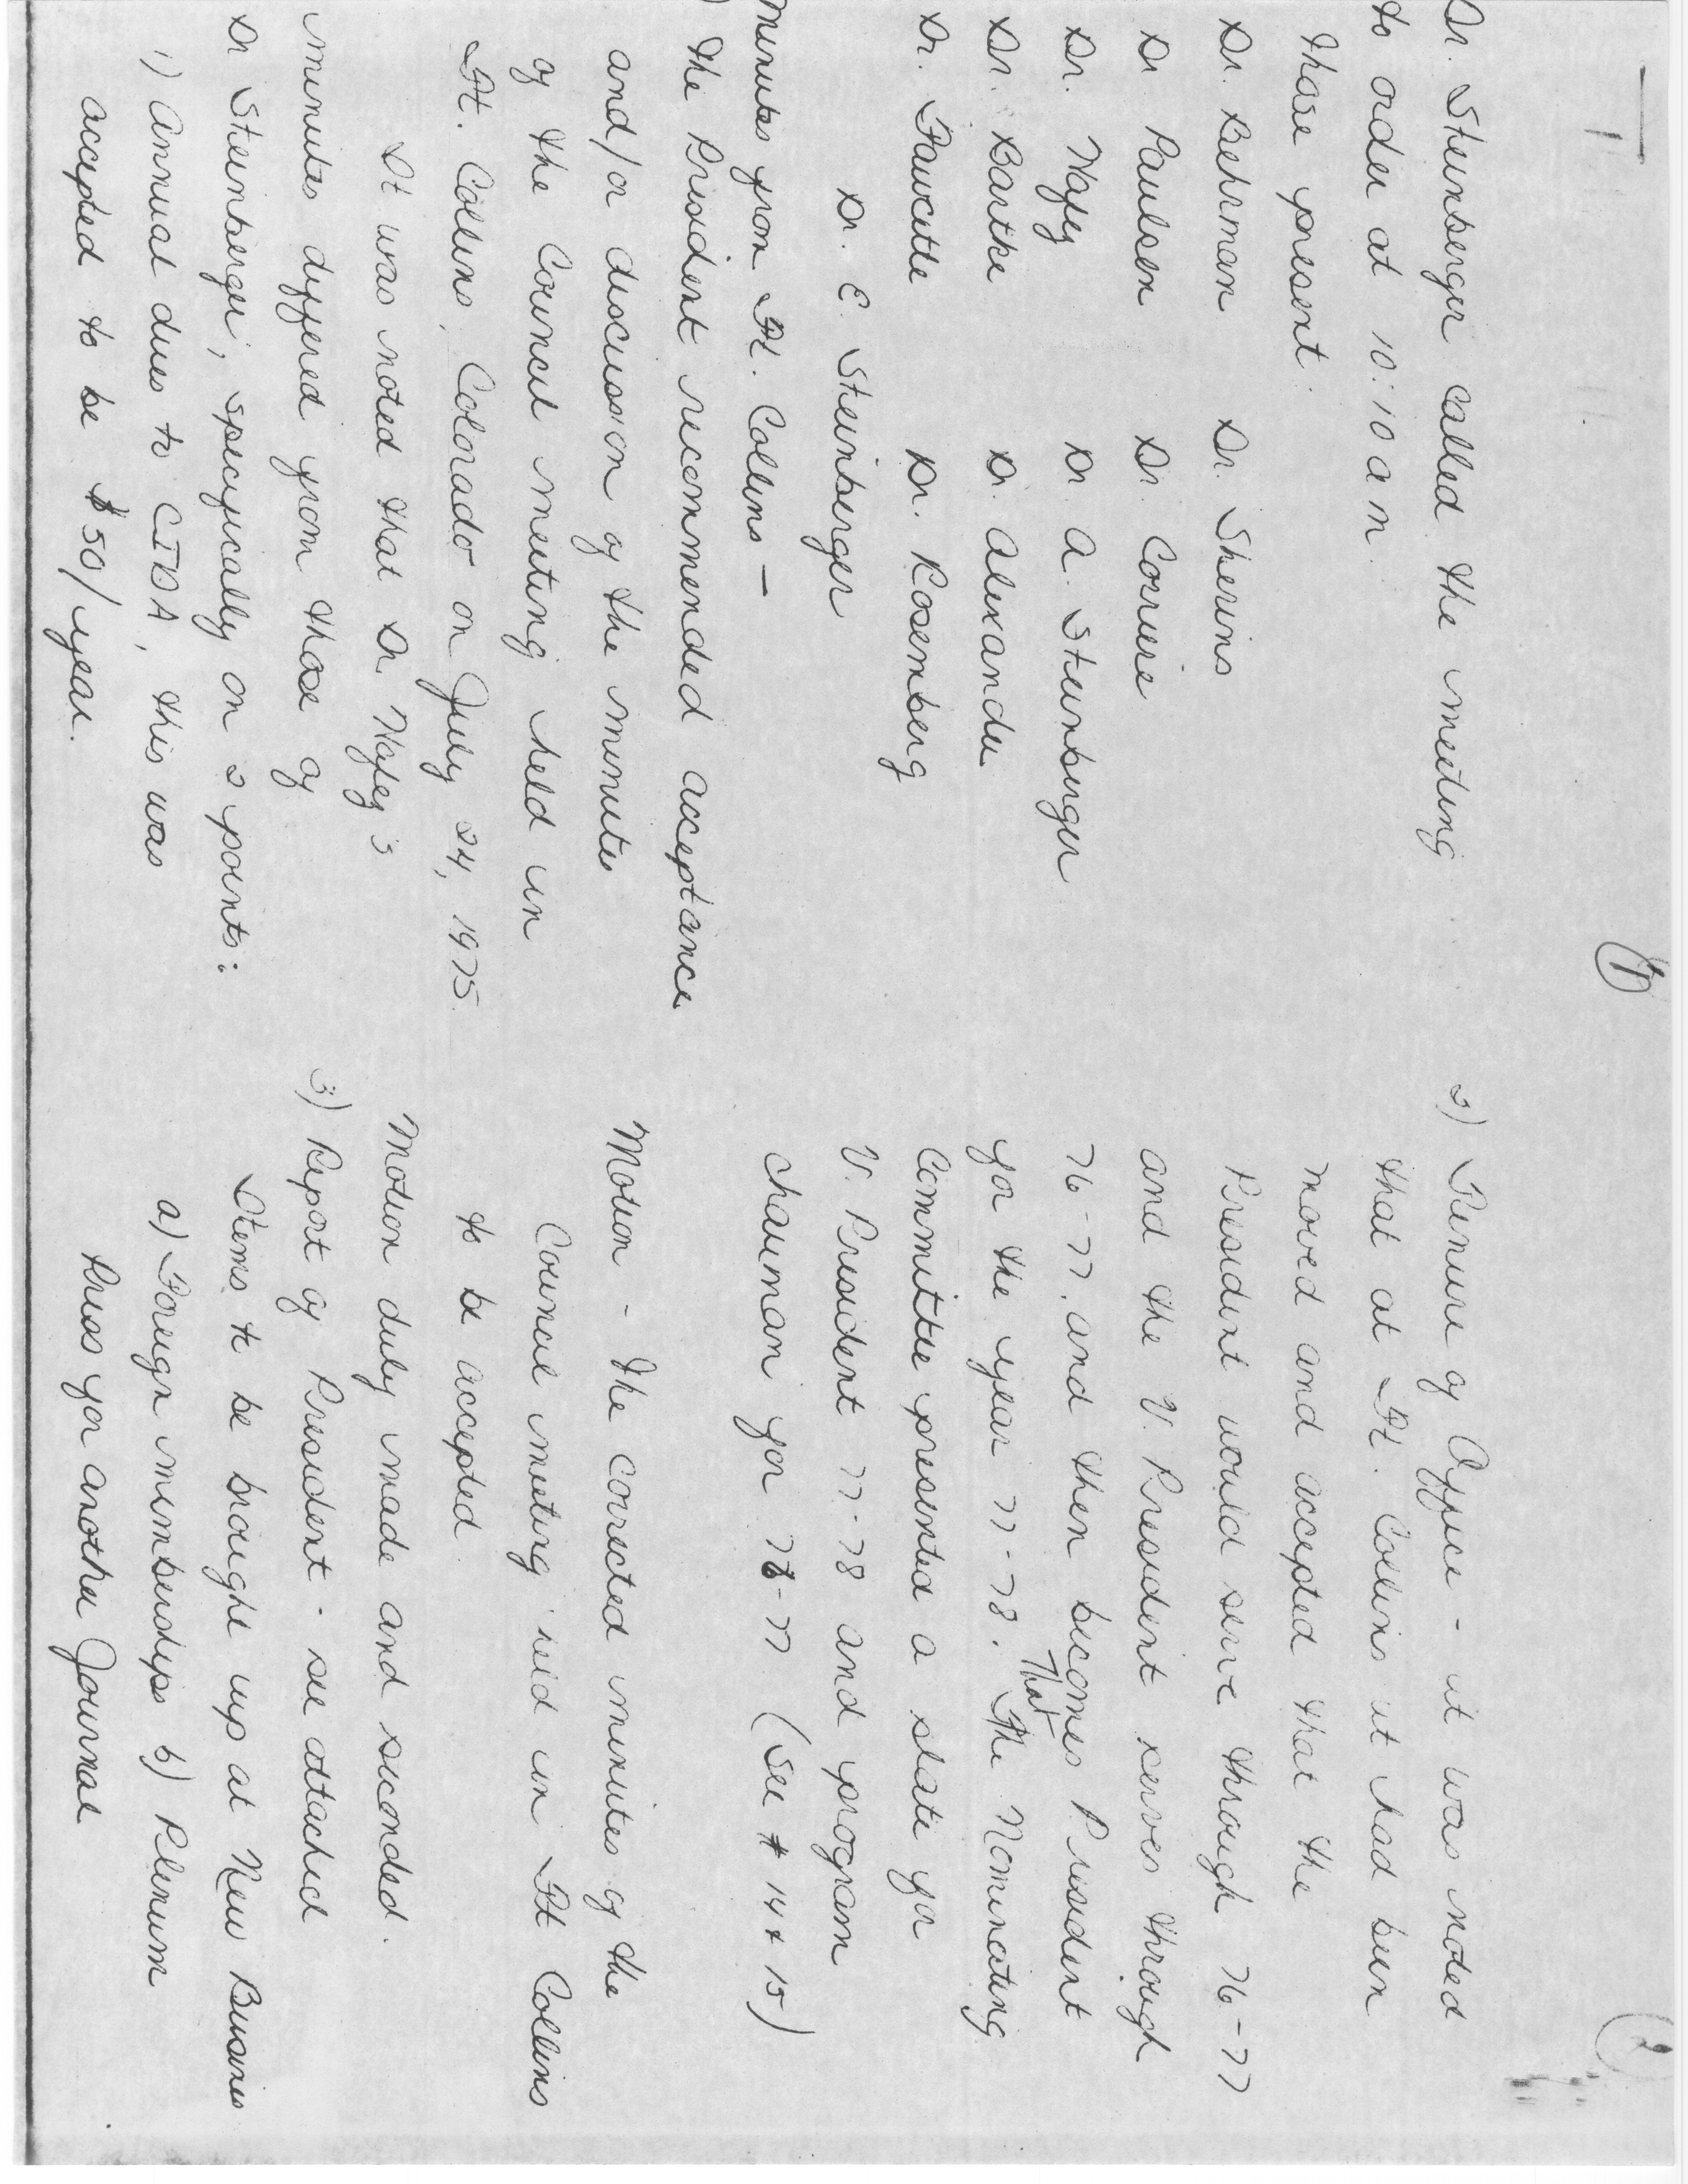 1
Dr. Steinberger called the meeting
to order at 10:10 am.
Those present:
Dr. Behrman Dr. Sherins
Dr Paulsen Dr. Corriere
Dr. Hafez Dr A. Steinberger
Dr. Bartke Dr. Alexander
Dr. Faucette Dr. Rosemberg
Dr. E. Steinberger
Minutes from Ft. Collins -
) The President recommended acceptance
and/or discussion of the minutes
of the Council meeting held in
Ft. Collins, Colorado on July 24, 1975.
It was noted that Dr. Hafez's
minutes differed from those of
Dr Steinberger; specifically on 2 points:
1) Annual dues to CIDA, this was
accepted to be $50/year.
2
2) Tenure of Office - it was noted
that at Ft. Collins it had been
moved and accepted that the
President would serve through 76-77
and the V. President serves through
76-77, and then becomes President
for the year 77-78. That The Nominating
Committee presented a slate for
V. President 77-78 and program
chairman for 76-77 (see # 14 & 15)
Motion - The corrected minutes of the
Council meeting held in Ft Collins
to be accepted.
Motion duly made and seconded.
3) Report of President - see attached
Items to be brought up at New Business
a) Foreign memberships b) Plenum
Press for another Journal